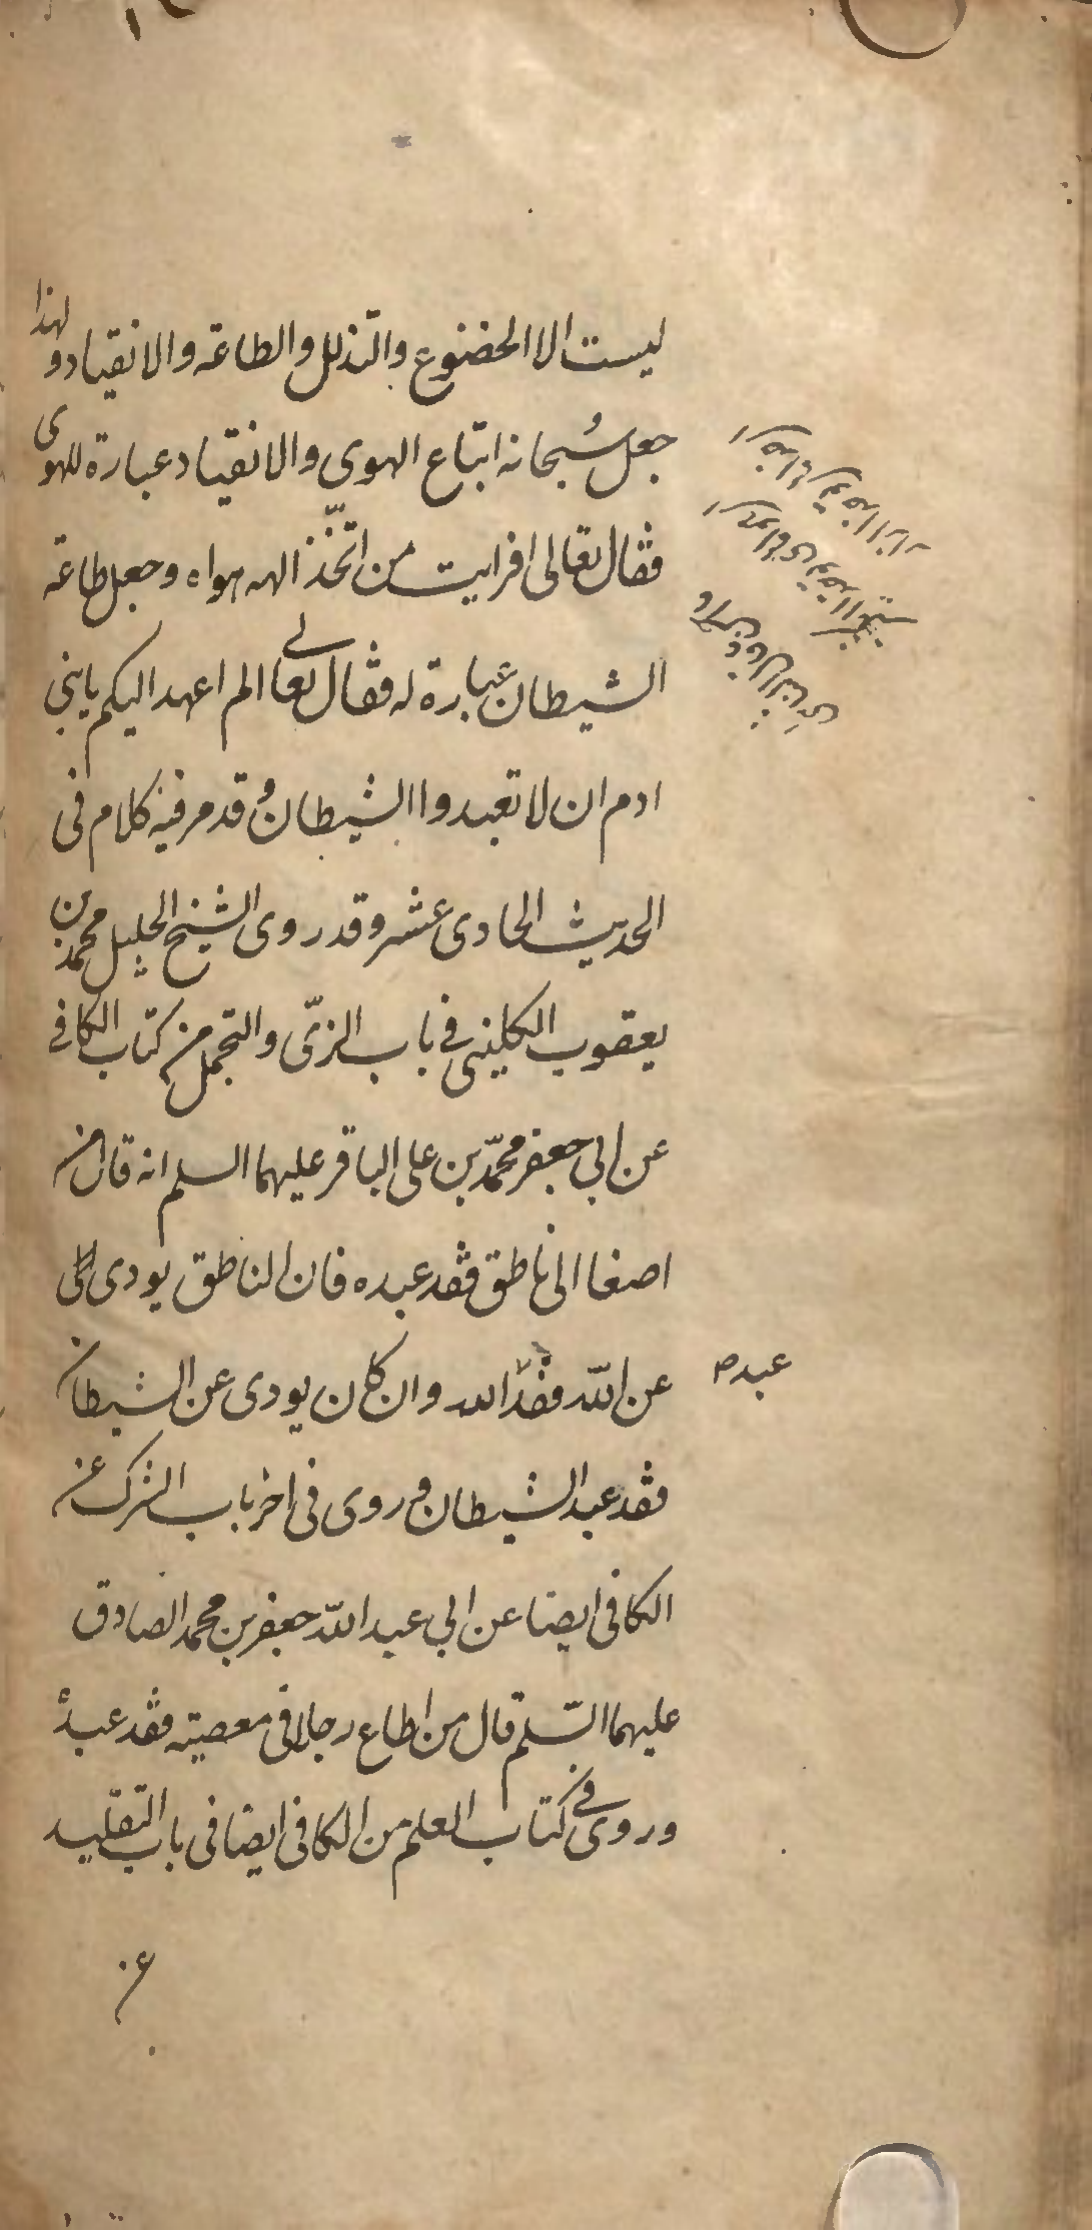 ليست الا الخضوع والتذلل والطاعة والانقياد ولهذا
جعل سبحانه اتباع الهوى والانقياد عبارة للهوى
فقال تعالى افرايت من اتخذ الهه هواه وجعل طاعة
الشيطان عبارة له فقال تعالى الم اعهد اليكم يا بنى
ادم ان لا تعبدوا الشيطان وقد مر فيه كلام فى
الحديث الحادى عشر وقد روى الشيخ الجليل محمد بن
يعقوب الكلينى فى باب الزىّ والتجمل من كتاب الكافى
عن ابى جعفر محمّد بن على الباقر عليهما السلم انه قال من
اصغا الى ناطق فقد عبده فان الناطق يودى
عن اللّه فقد الله وان كان يودى عن الشيطان
عبد ص
فقد عبد الشيطان وروى فى اخر باب الشرك عن
الكافى ايضا عن ابى عبد اللّه جعفر بن محمد الصادق
عليهما السّلم قال من اطاع رجلا فى معصيته فقد عبده
وروى فى كتاب العلم من الكافى ايضا فى باب التقليد
عن